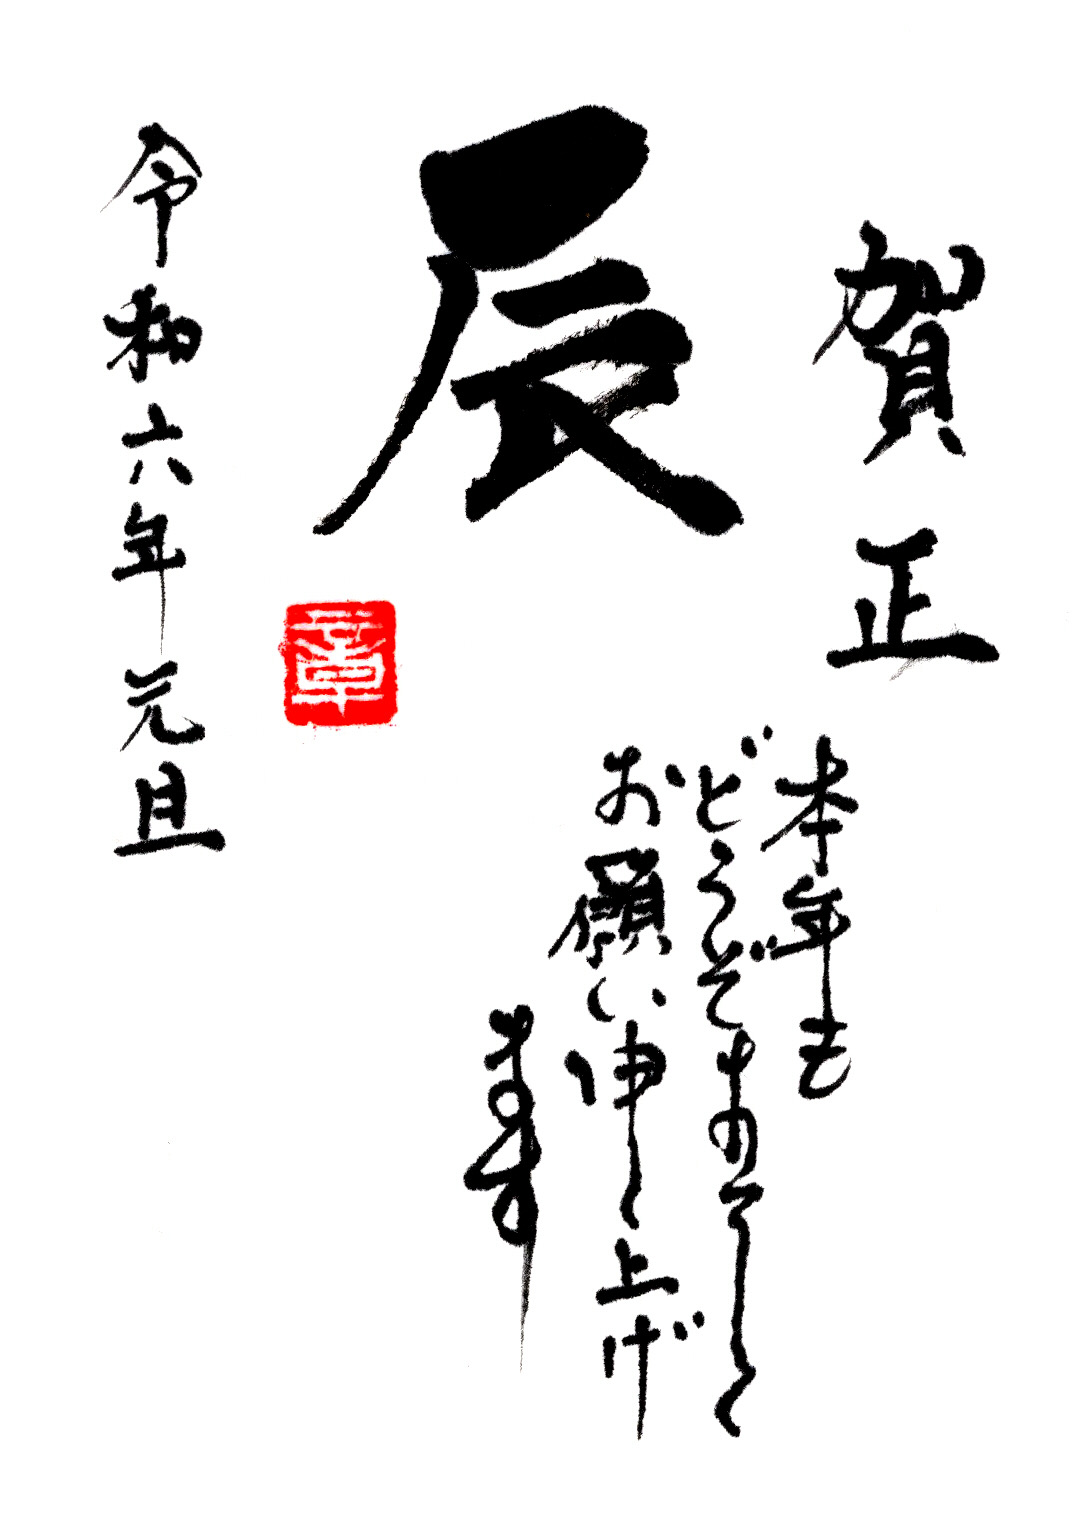 賀正
辰
本年も
どうぞよろしく
お願い申し上げ
ます
令和六年元旦
章